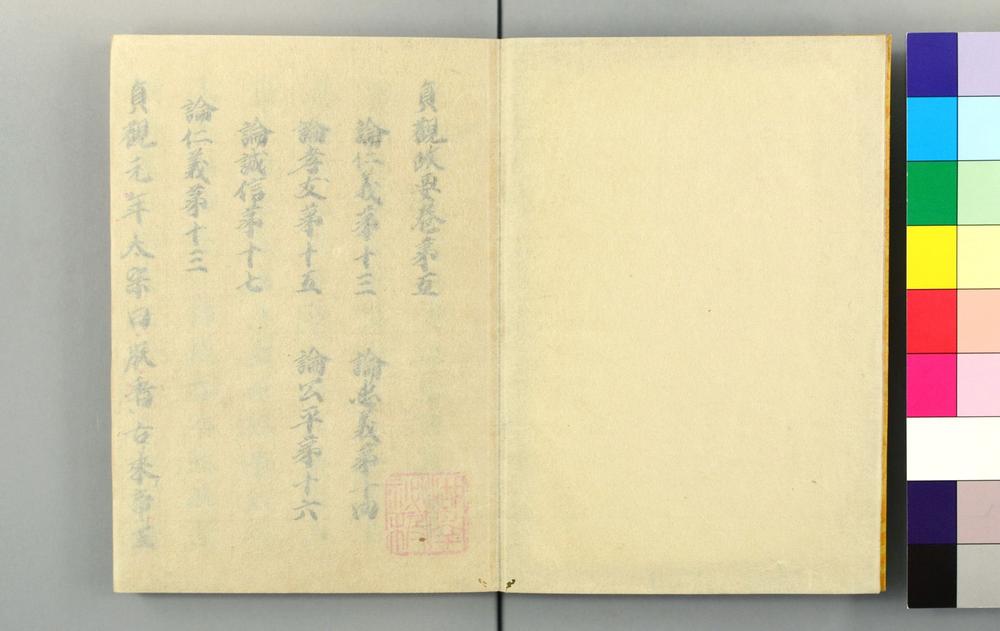 貞觀政要卷第五
論仁義第十三　論忠義第十四
論孝友第十五　論公平第十六
論誠信第十七
論仁義第十三
貞觀元年太宗曰朕看古來帝王